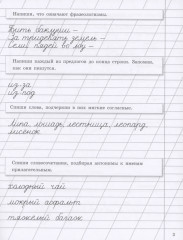 Напиши, что означают фразеологизмы.
Бить баклуши –
За тридевять земель –
Семи пядей во лбу –
Напиши каждый из предлогов до конца строки. Запомни, как они пишутся.
из-за
из-под
Спиши слова, подчеркни в них мягкие согласные.
Липа, лошадь, лестница, леопард,
лисёнок
Спиши словосочетания, подбирая антонимы к именам прилагательным.
холодный чай
мокрый асфальт
тяжёлый багаж
3